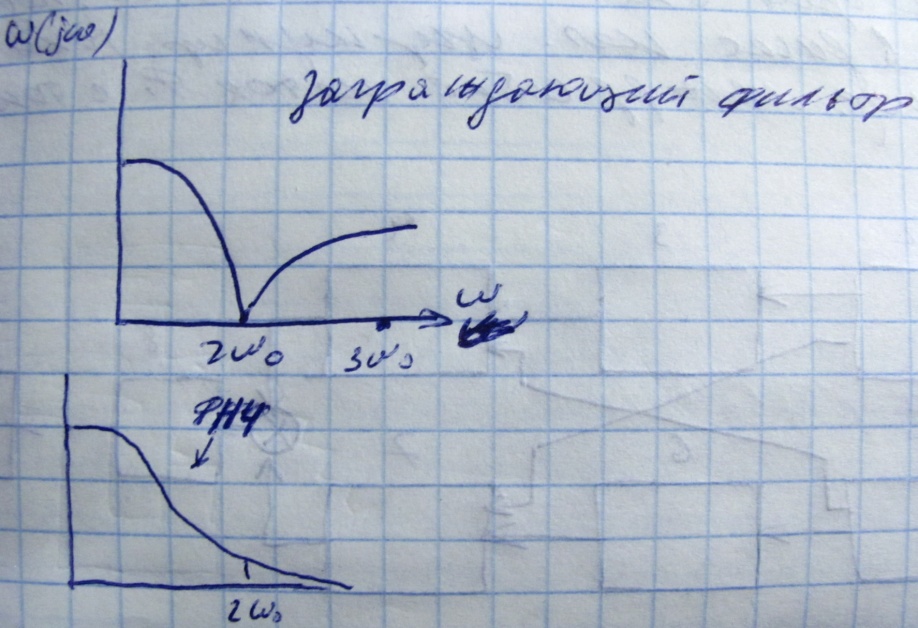 W(jω)
заграждающий фильтр
ω
2ω₀ 3ω₀
ФНЧ
2ω₀